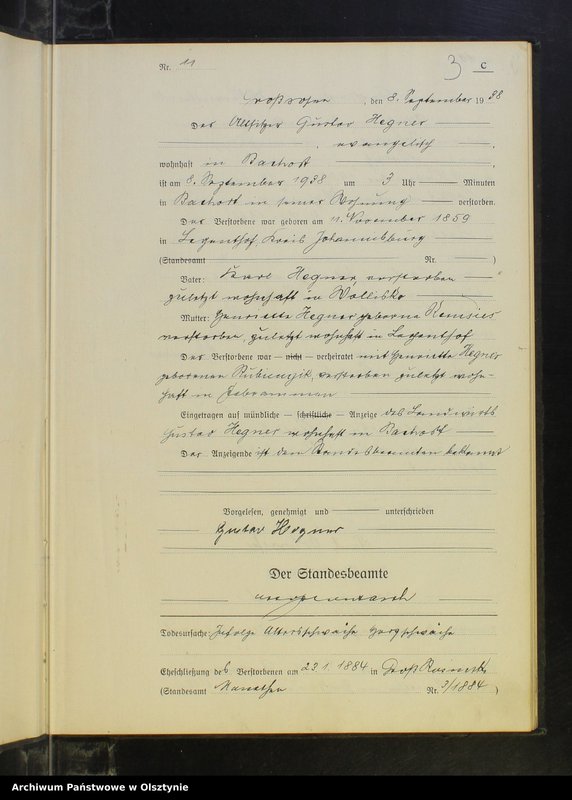 Nr. 11
3 C
den 8. September 1938
Der Altsitzer Gustav Hegner
evangelisch
wohnhaft in Bachort
ist am 8. September 1938 um 3 Uhr Minuten
in Bachort in seiner Wohnung verstorben.
Der Verstorbene war geboren am 11. November 1859
in Legenthof, Kreis Johannisburg
(Standesamt Nr. )
Vater: Karl Hegner, verstorben
zuletzt wohnhaft in Wollisko
Mutter: Henriette Hegner geborene
verstorben, zuletzt wohnhaft in Legenthof
Der Verstorbene war nicht verheiratet mit Henriette Hegner
geborenen verstorben zuletzt wohn-
haft in
Eingetragen auf mündliche schriftliche Anzeige des Landwirts
Gustav Hegner wohnhaft in Bachort
Der Anzeigende ist dem Standesbeamten bekannt
Vorgelesen, genehmigt und unterschrieben
Gustav Hegner
Der Standesbeamte
Todesursache: Infolge Altersschwäche Herzschwäche
Eheschließung des Verstorbenen am 23.1.1884 in Groß
(Standesamt Nr. 3/1884)
Archiwum Państwowe w Olsztynie